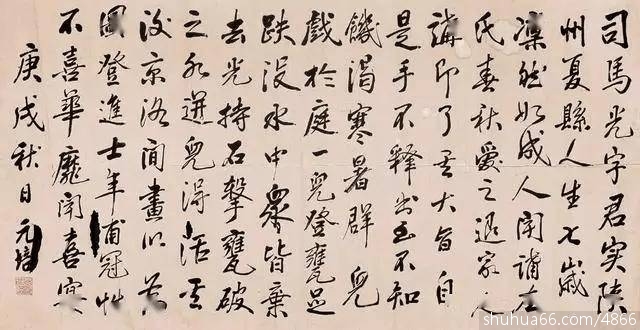 司馬光字君實陝
州夏縣人生七歲
凜然如成人聞講左
氏春秋愛之退家人
講即了其大旨自
是手不釋書至不知
饑渴寒暑群兒
戲於庭一兒登甕足
跌沒水中眾皆棄
去光持石擊甕破
之水迸兒得活其
後京洛間畫以為
圖登進士年甫冠性
不喜華靡聞喜宴
庚戌秋日 元培
shuhua66.com/4866